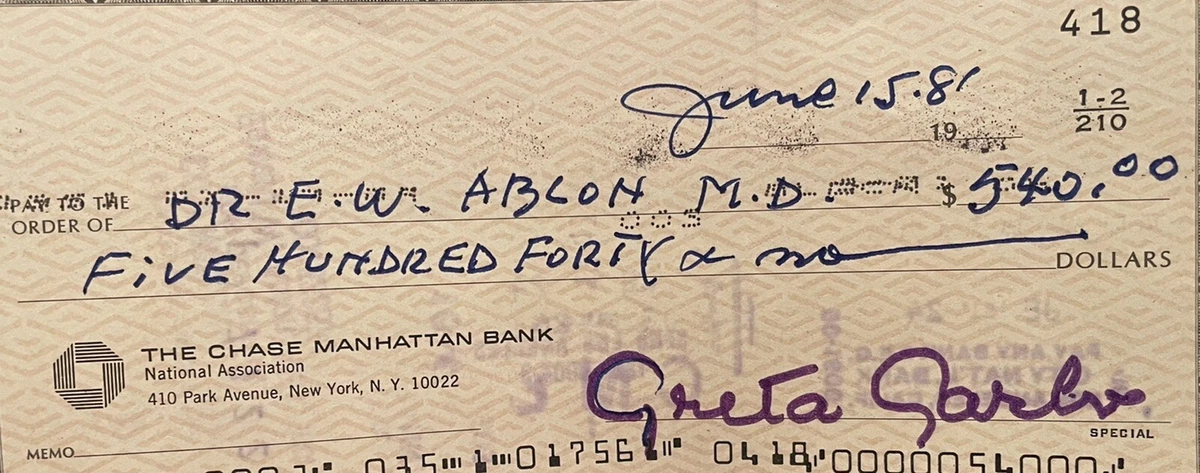 418
June 15.81
19
1-2
210
PAY TO THE
ORDER OF DR E.W. ABLON M.D. $ 540.00
003
FIVE HUNDRED FORTY & no DOLLARS
THE CHASE MANHATTAN BANK
National Association
410 Park Avenue, New York, N. Y. 10022
Greta Garbo
SPECIAL
MEMO
035 1 017561 0418 0000054000